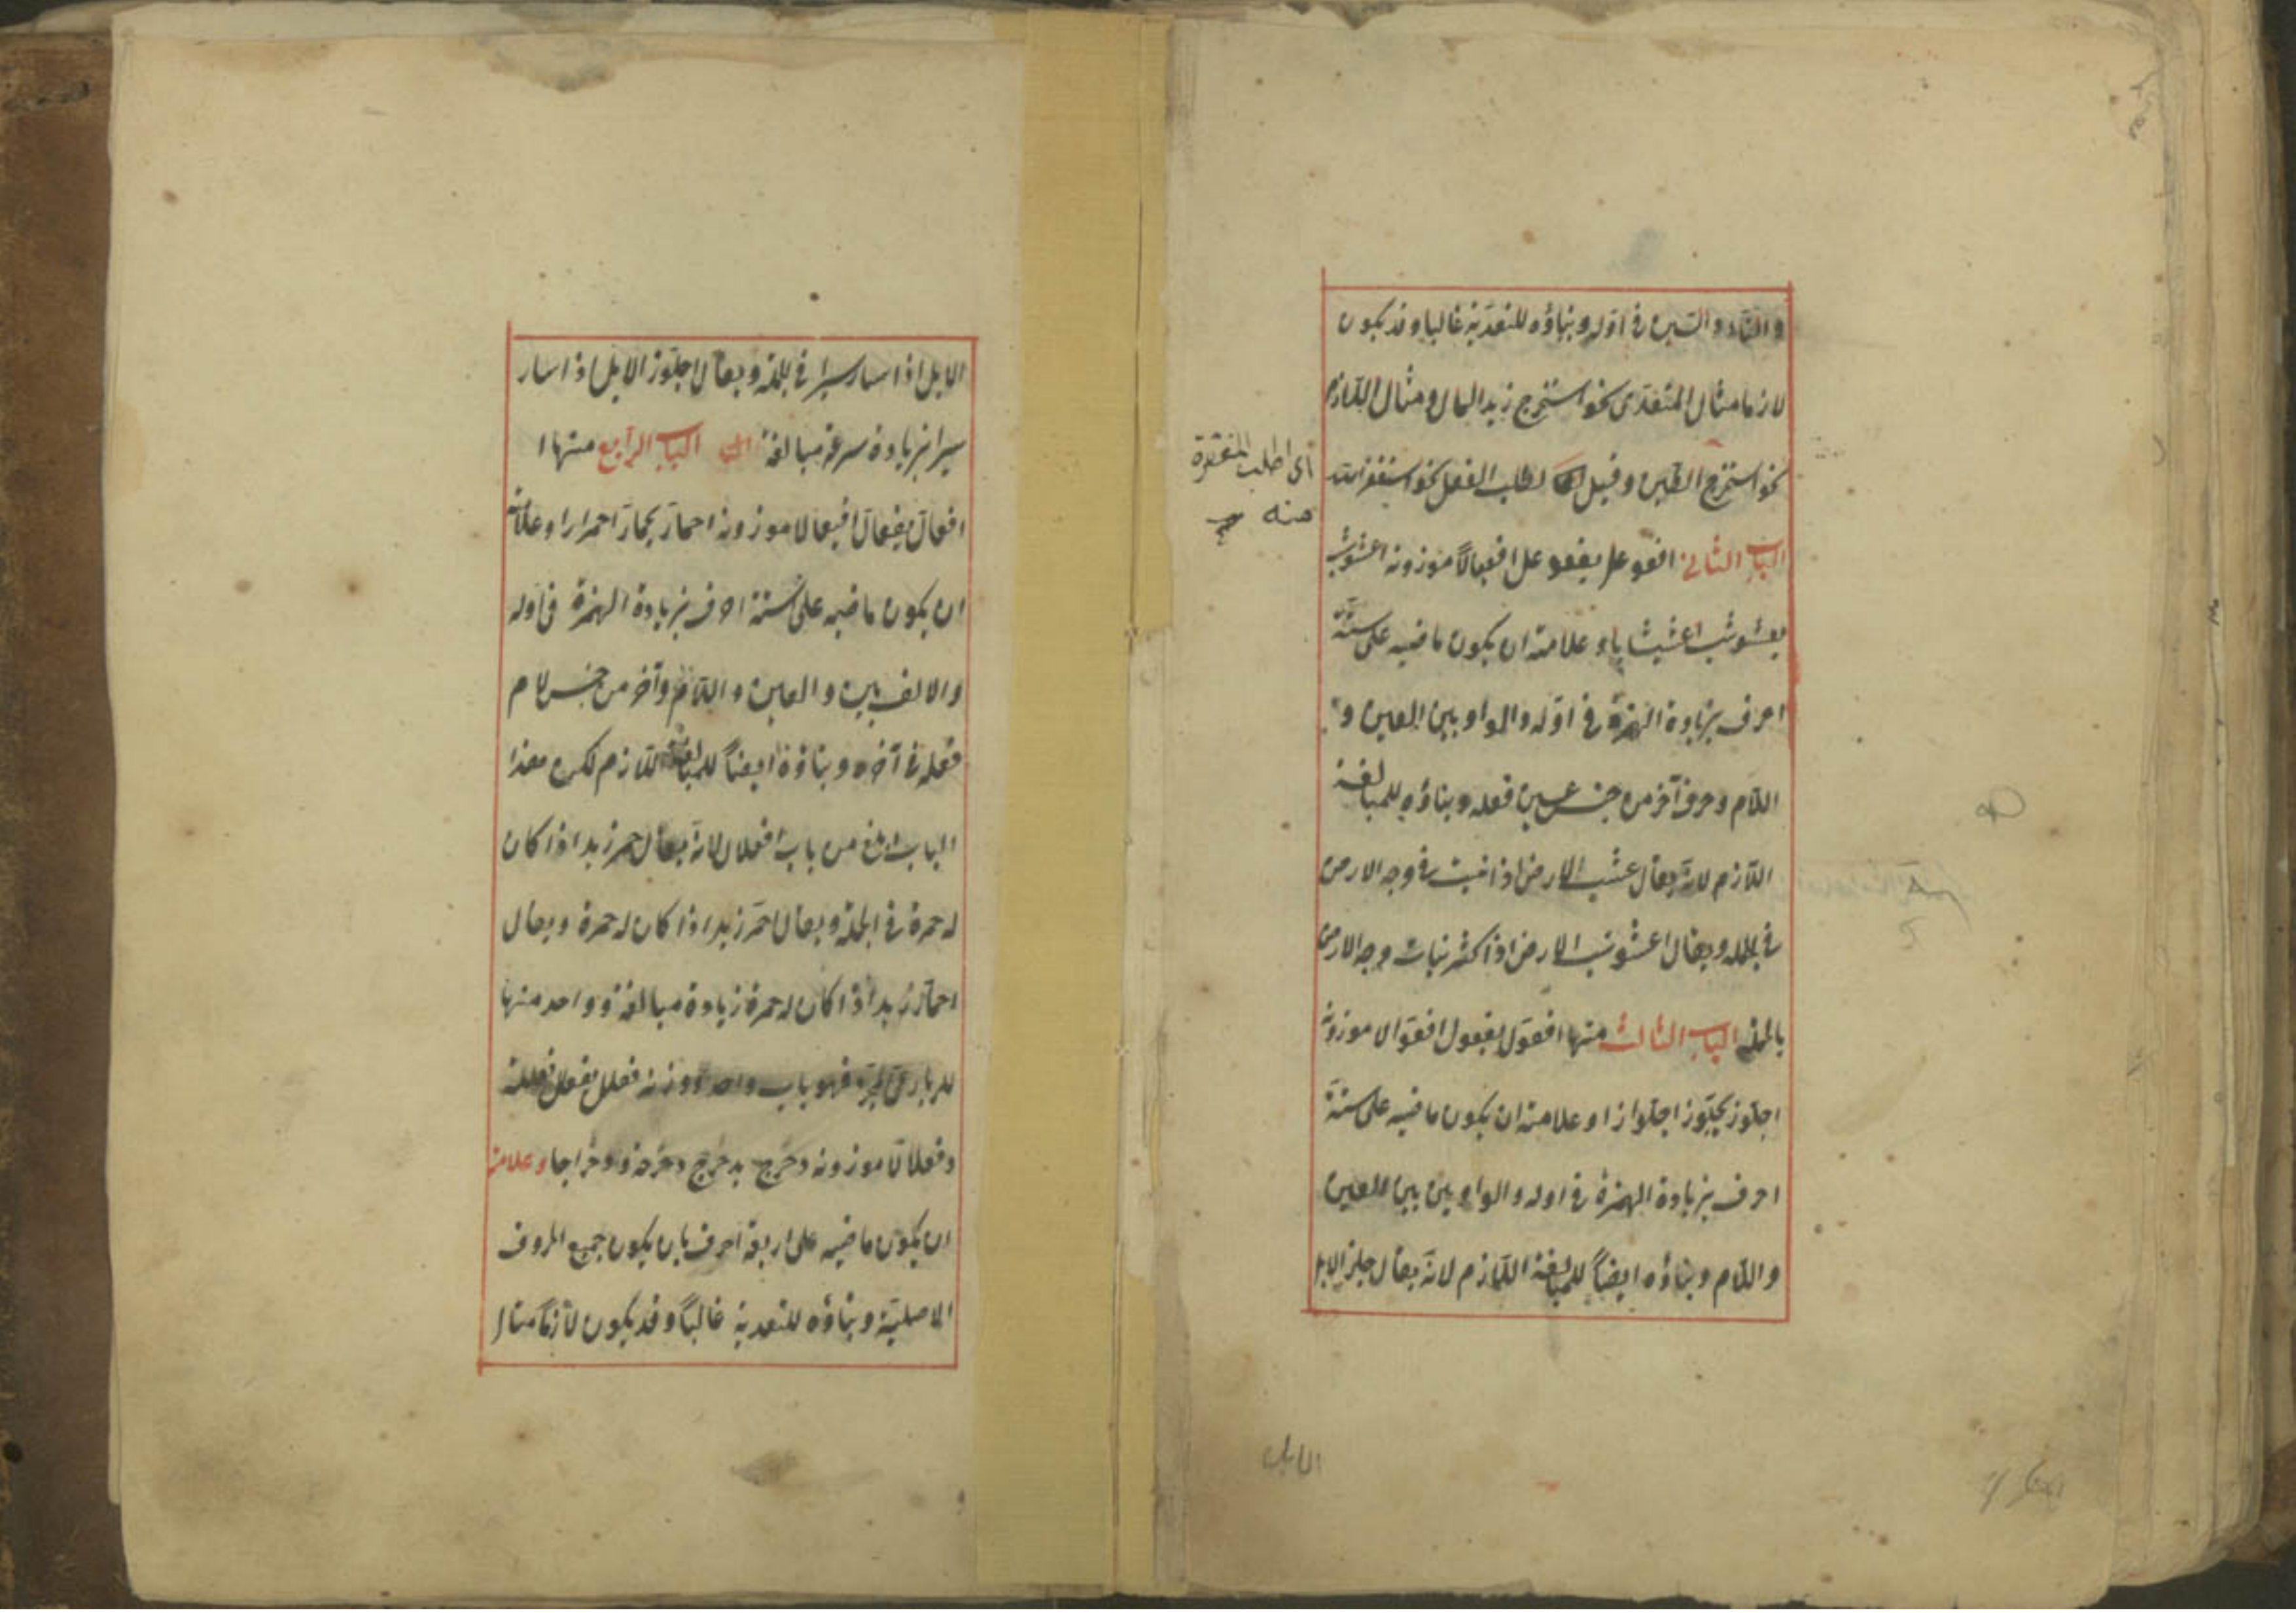 والتاء والسين في اوله وبناؤه للتعدية غالبا وقد يكون
لازما مثال المتعدى نحو استخرج زيد المال ومثال اللازم
نحو استحجر الطين وقيل لطلب الفعل نحو استغفر الله
اى اطلب المغفرة
منه
الباب الثانى افعوعل يفعوعل افعيعالا موزونه اعشوشب
يعشوشب اعشيشابا وعلامته ان يكون ماضيه على ستة
احرف بزيادة الهمزة في اوله والواو بين العين و
اللام وحرف آخر من جنس عين فعله وبناؤه للمبالغة
اللازم لانه يقال عشب الارض اذا نبت في وجه الارض
في الجملة ويقال اعشوشب الارض اذا كثر نبات وجه الارض
بالجملة الباب الثالث منها افعول يفعول افعوالا موزونه
اجلوز يجلوز اجلوازا وعلامته ان يكون ماضيه على ستة
احرف بزيادة الهمزة في اوله والواوين بين العين
واللام وبناؤه ايضاً للمبالغة اللازم لانه يقال جلز الابل
الابل
الابل اذا سار سيرا في الجملة ويقال اجلوز الابل اذا سار
سيرا بزيادة سرعة مبالغة الباب الرابع منها ا
افعال يفعال افيعالا موزونه احمار يحمار احمرارا وعلامته
ان يكون ماضيه على ستة احرف بزيادة الهمزة فى اوله
والالف بين العين واللام وآخر من جنس لام
فعله في آخره وبناؤه ايضاً للمبالغة اللازم لكن هذا
الباب ابلغ من باب افعلال لانه يقال حمر زيد اذا كان
له حمرة في الجملة ويقال احمر زيد اذا كان له حمرة ويقال
احمار زيد اذا كان له حمرة زيادة مبالغة وواحد منها
للرباعى المجرد فهو باب واحد ووزنه فعلل يفعلل فعللة
وفعلالا موزونه دحرج يدحرج دحرجة ودحراجا وعلامته
ان يكون ماضيه على اربعة احرف بان يكون جميع الحروف
الاصلية وبناؤه للتعدية غالباً وقد يكون لازماً مثال